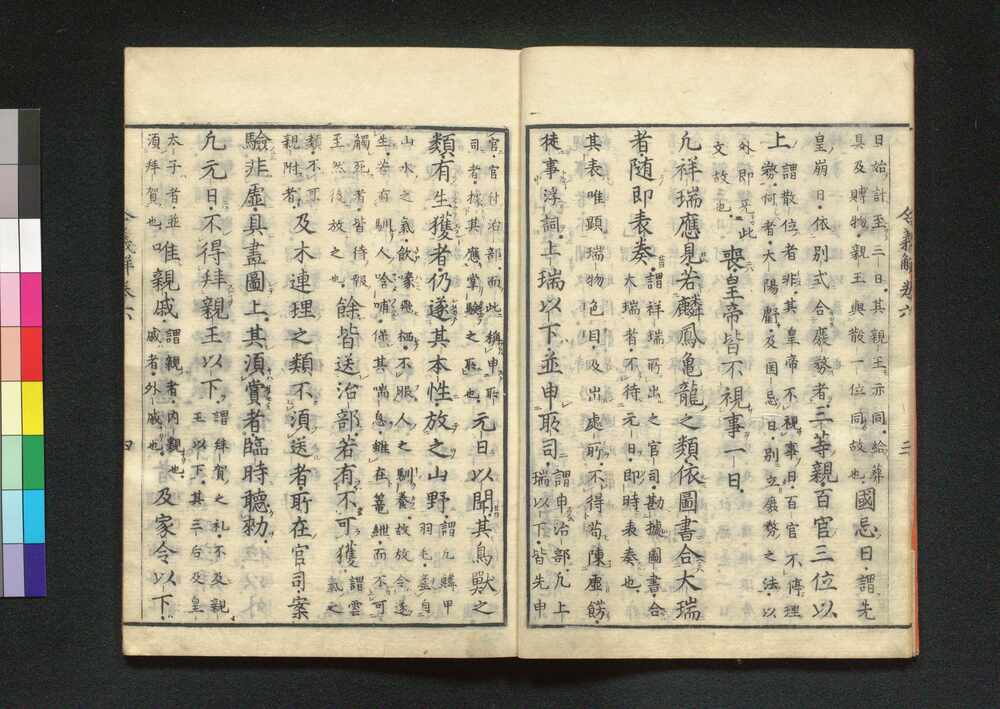 日始計至三日其親王亦同給葬
具及賻物親王與散一位同故也
國忌日
謂先
皇崩日依別式合廢務者
三等親百官三位以
上
謂散位者非其皇帝不視事日百官不停理
務何者大陽虧及国忌日別立廢務之法以
外即是此
文故也
喪皇帝皆不視事一日
凡祥瑞應見若麟鳳龜龍之類依圖書合大瑞
者随即表奏
謂祥瑞所出之官司勘據圖書合
大瑞者不待元日即時表奏也
其表唯顕瑞物色目及出處所不得苟陳虚飾
徒事浮詞上瑞以下並申所司
謂申治部凡上
瑞以下皆先申
令義解卷六 三
官官付治部而此稱申所
司者據其應掌驗之所也
元日以聞其鳥獸之
類有生獲者仍遂其本性放之山野
謂凡鱗甲
羽毛盖自
山水之氣飲啄栖不服人之馴養故放令遂
生若有馴人唅哺保其喘息雖在紲而不可
觸死者皆待報
至然後放之也
餘皆送治部若有不可獲
謂雲
氣之
類不可
親附者
及木連理之類不須送者所在官司案
驗非虚具畫圖上其須賞者臨時聽勅
凡元日不得拜親王以下
謂拜賀之礼不及親
王以下其三后及皇
太子者並
須拜賀也
唯親戚
謂親者内親也
戚者外戚也
及家令以下
令義解卷六 四